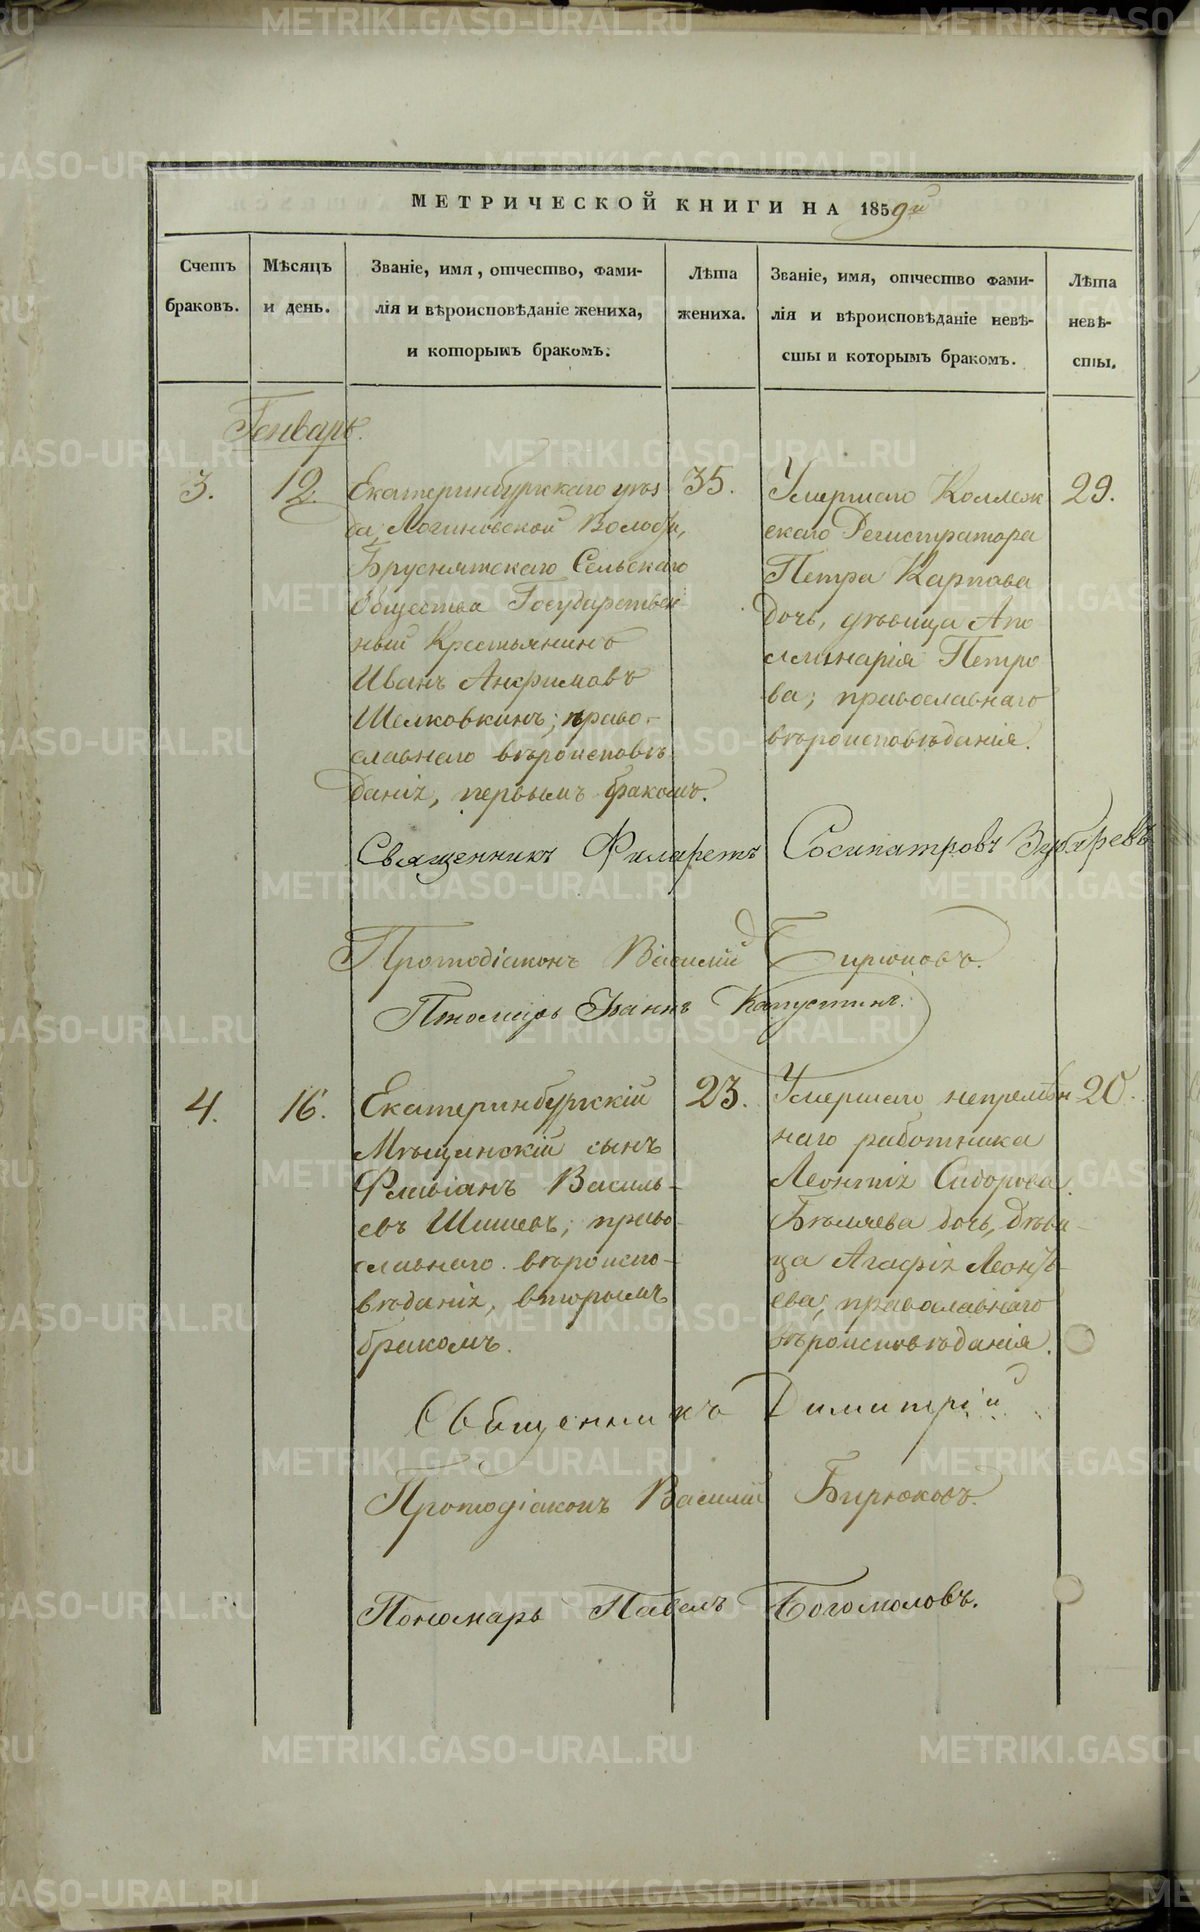 МЕТРИЧЕСКОЙ КНИГИ НА 1859й
Счетъ браковъ.
Мѣсяцъ и день.
Званіе, имя, отчество, фами-
лія и вѣроисповѣданіе жениха,
и которымъ бракомъ.
Лѣта жениха.
Званіе, имя, отчество фами-
лія и вѣроисповѣданіе невѣ-
сты и которымъ бракомъ.
Лѣта невѣ-
сты.
Генварь.
3.
12
Екатеринбургскаго уѣз
да, Логиновской Волости,
Бруснятскаго Сельскаго
Общества Государствен-
ный Крестьянинъ
Иванъ Анфимовъ
Шелковкинъ; право-
славнаго вѣроисповѣ-
данія, первымъ бракомъ.
35.
Умершаго Коллеж
скаго Регистратора
Петра Карпова
дочь, дѣвица Апо
ллинарія Петро
ва; православнаго
вѣроисповѣданія.
29.
Священникъ Филаретъ Сосипатровъ Зубаревъ
Протодіаконъ Василій Бирюковъ.
Пономарь Іоаннъ Капустинъ.
4.
16.
Екатеринбургскій
Мѣщанскій сынъ
Флавіанъ Василь-
евъ Шишевъ; право-
славнаго вѣроиспо-
вѣданія, вторымъ
бракомъ.
23.
Умершаго непремѣн
наго работника
Леонтія Сидорова
Бѣляева дочь, дѣви-
ца Агафія Леонть-
ева; православнаго
вѣроисповѣданія.
20.
Священникъ Димитрій
Протодіаконъ Василій Бирюковъ.
Пономарь Павелъ Богомоловъ.